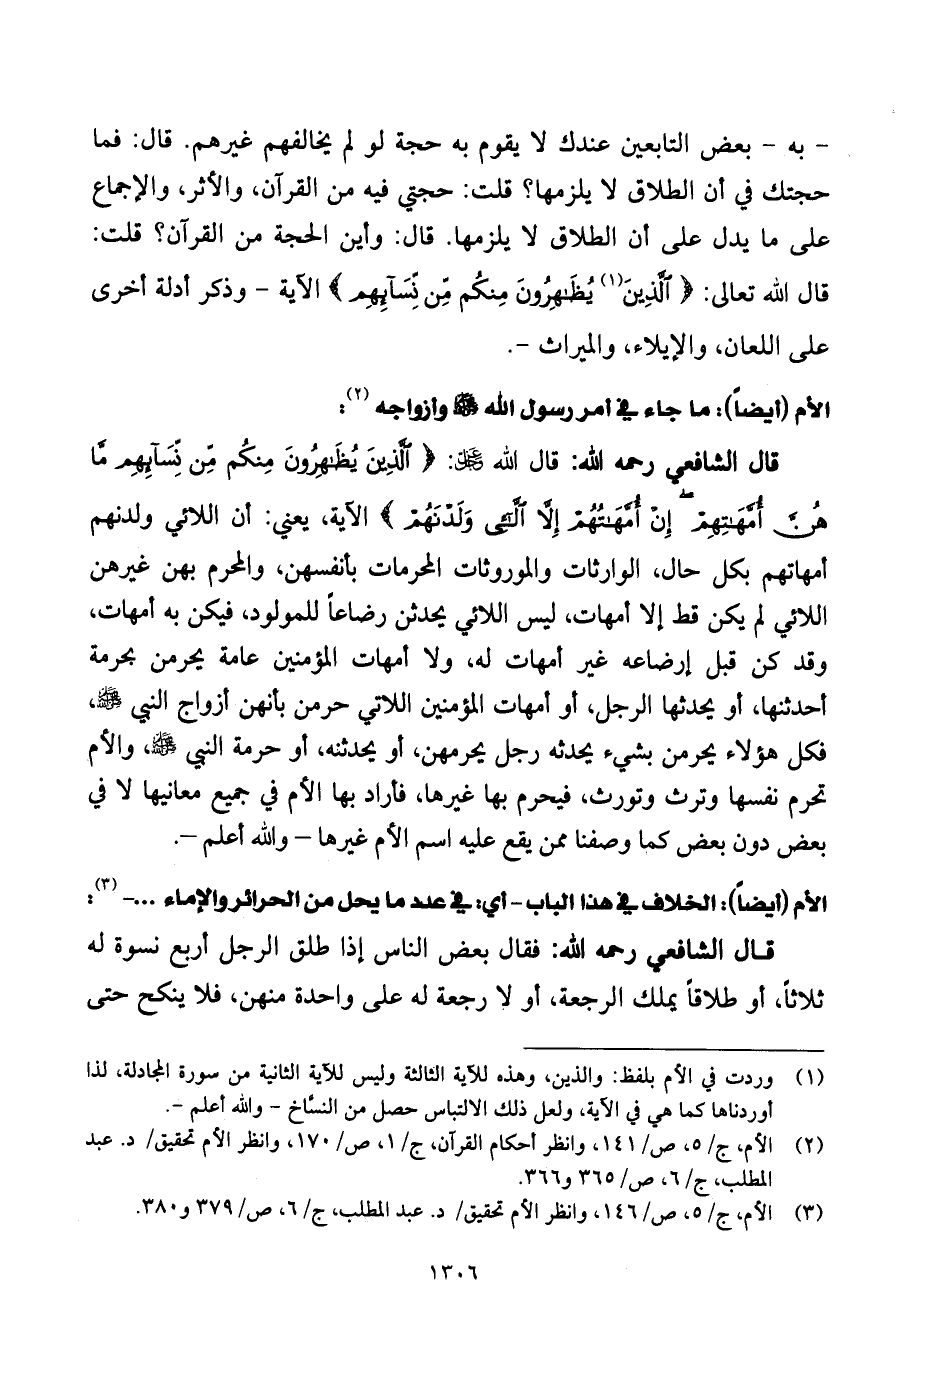 - به - بعض التابعين عندك لا يقوم به حجة لو لم يخالفهم غيرهم. قال: فما
حجتك في أن الطلاق لا يلزمها؟ قلت: حجتي فيه من القرآن، والأثر، والإجماع
على ما يدل على أن الطلاق لا يلزمها. قال: وأين الحجة من القرآن؟ قلت:
قال الله تعالى: ﴿ ٱلَّذِينَ(١) يُظَٰهِرُونَ مِنكُم مِّن نِّسَآئِهِم ﴾ الآية - وذكر أدلة أخرى
على اللعان، والإيلاء، والميراث -.
الأم (أيضاً): ما جاء في أمر رسول الله ﷺ وأزواجه (٢):
قال الشافعي رحمه الله: قال الله ﷻ: ﴿ ٱلَّذِينَ يُظَٰهِرُونَ مِنكُم مِّن نِّسَآئِهِم مَّا
هُنَّ أُمَّهَٰتِهِمْ ۖ إِنْ أُمَّهَٰتُهُمْ إِلَّا ٱلَّٰٓـِٔي وَلَدْنَهُمْ ﴾ الآية، يعني: أن اللائي ولدنهم
أمهاتهم بكل حال، الوارثات والموروثات المحرمات بأنفسهن، والمحرم بهن غيرهن
اللائي لم يكن قط إلا أمهات، ليس اللائي يحدثن رضاعاً للمولود، فيكن به أمهات،
وقد كن قبل إرضاعه غير أمهات له، ولا أمهات المؤمنين عامة يحرمن بحرمة
أحدثنها، أو يحدثها الرجل، أو أمهات المؤمنين اللاتي حرمن بأنهن أزواج النبي ﷺ،
فكل هؤلاء يحرمن بشيء يحدثه رجل يحرمهن، أو يحدثنه، أو حرمة النبي ﷺ، والأم
تحرم نفسها وترث وتورث، فيحرم بها غيرها، فأراد بها الأم في جميع معانيها لا في
بعض دون بعض كما وصفنا ممن يقع عليه اسم الأم غيرها - والله أعلم -.
الأم (أيضاً): الخلاف في هذا الباب - أي: في عدد ما يحل من الحرائر والإماء ...- (٣):
قال الشافعي رحمه الله: فقال بعض الناس إذا طلق الرجل أربع نسوة له
ثلاثاً، أو طلاقاً يملك الرجعة، أو لا رجعة له على واحدة منهن، فلا ينكح حتى
(١) وردت في الأم بلفظ: والذين، وهذه للآية الثالثة وليس للآية الثانية من سورة المجادلة، لذا
أوردناها كما هي في الآية، ولعل ذلك الالتباس حصل من النسَّاخ - والله أعلم -.
(٢) الأم، ج/ ٥، ص/ ١٤١، وانظر أحكام القرآن، ج/ ١، ص/ ١٧٠، وانظر الأم تحقيق/ د. عبد
المطلب، ج/ ٦، ص/ ٣٦٥ و٣٦٦.
(٣) الأم، ج/ ٥، ص/ ١٤٦، وانظر الأم تحقيق/ د. عبد المطلب، ج/ ٦، ص/ ٣٧٩ و٣٨٠.
١٣٠٦